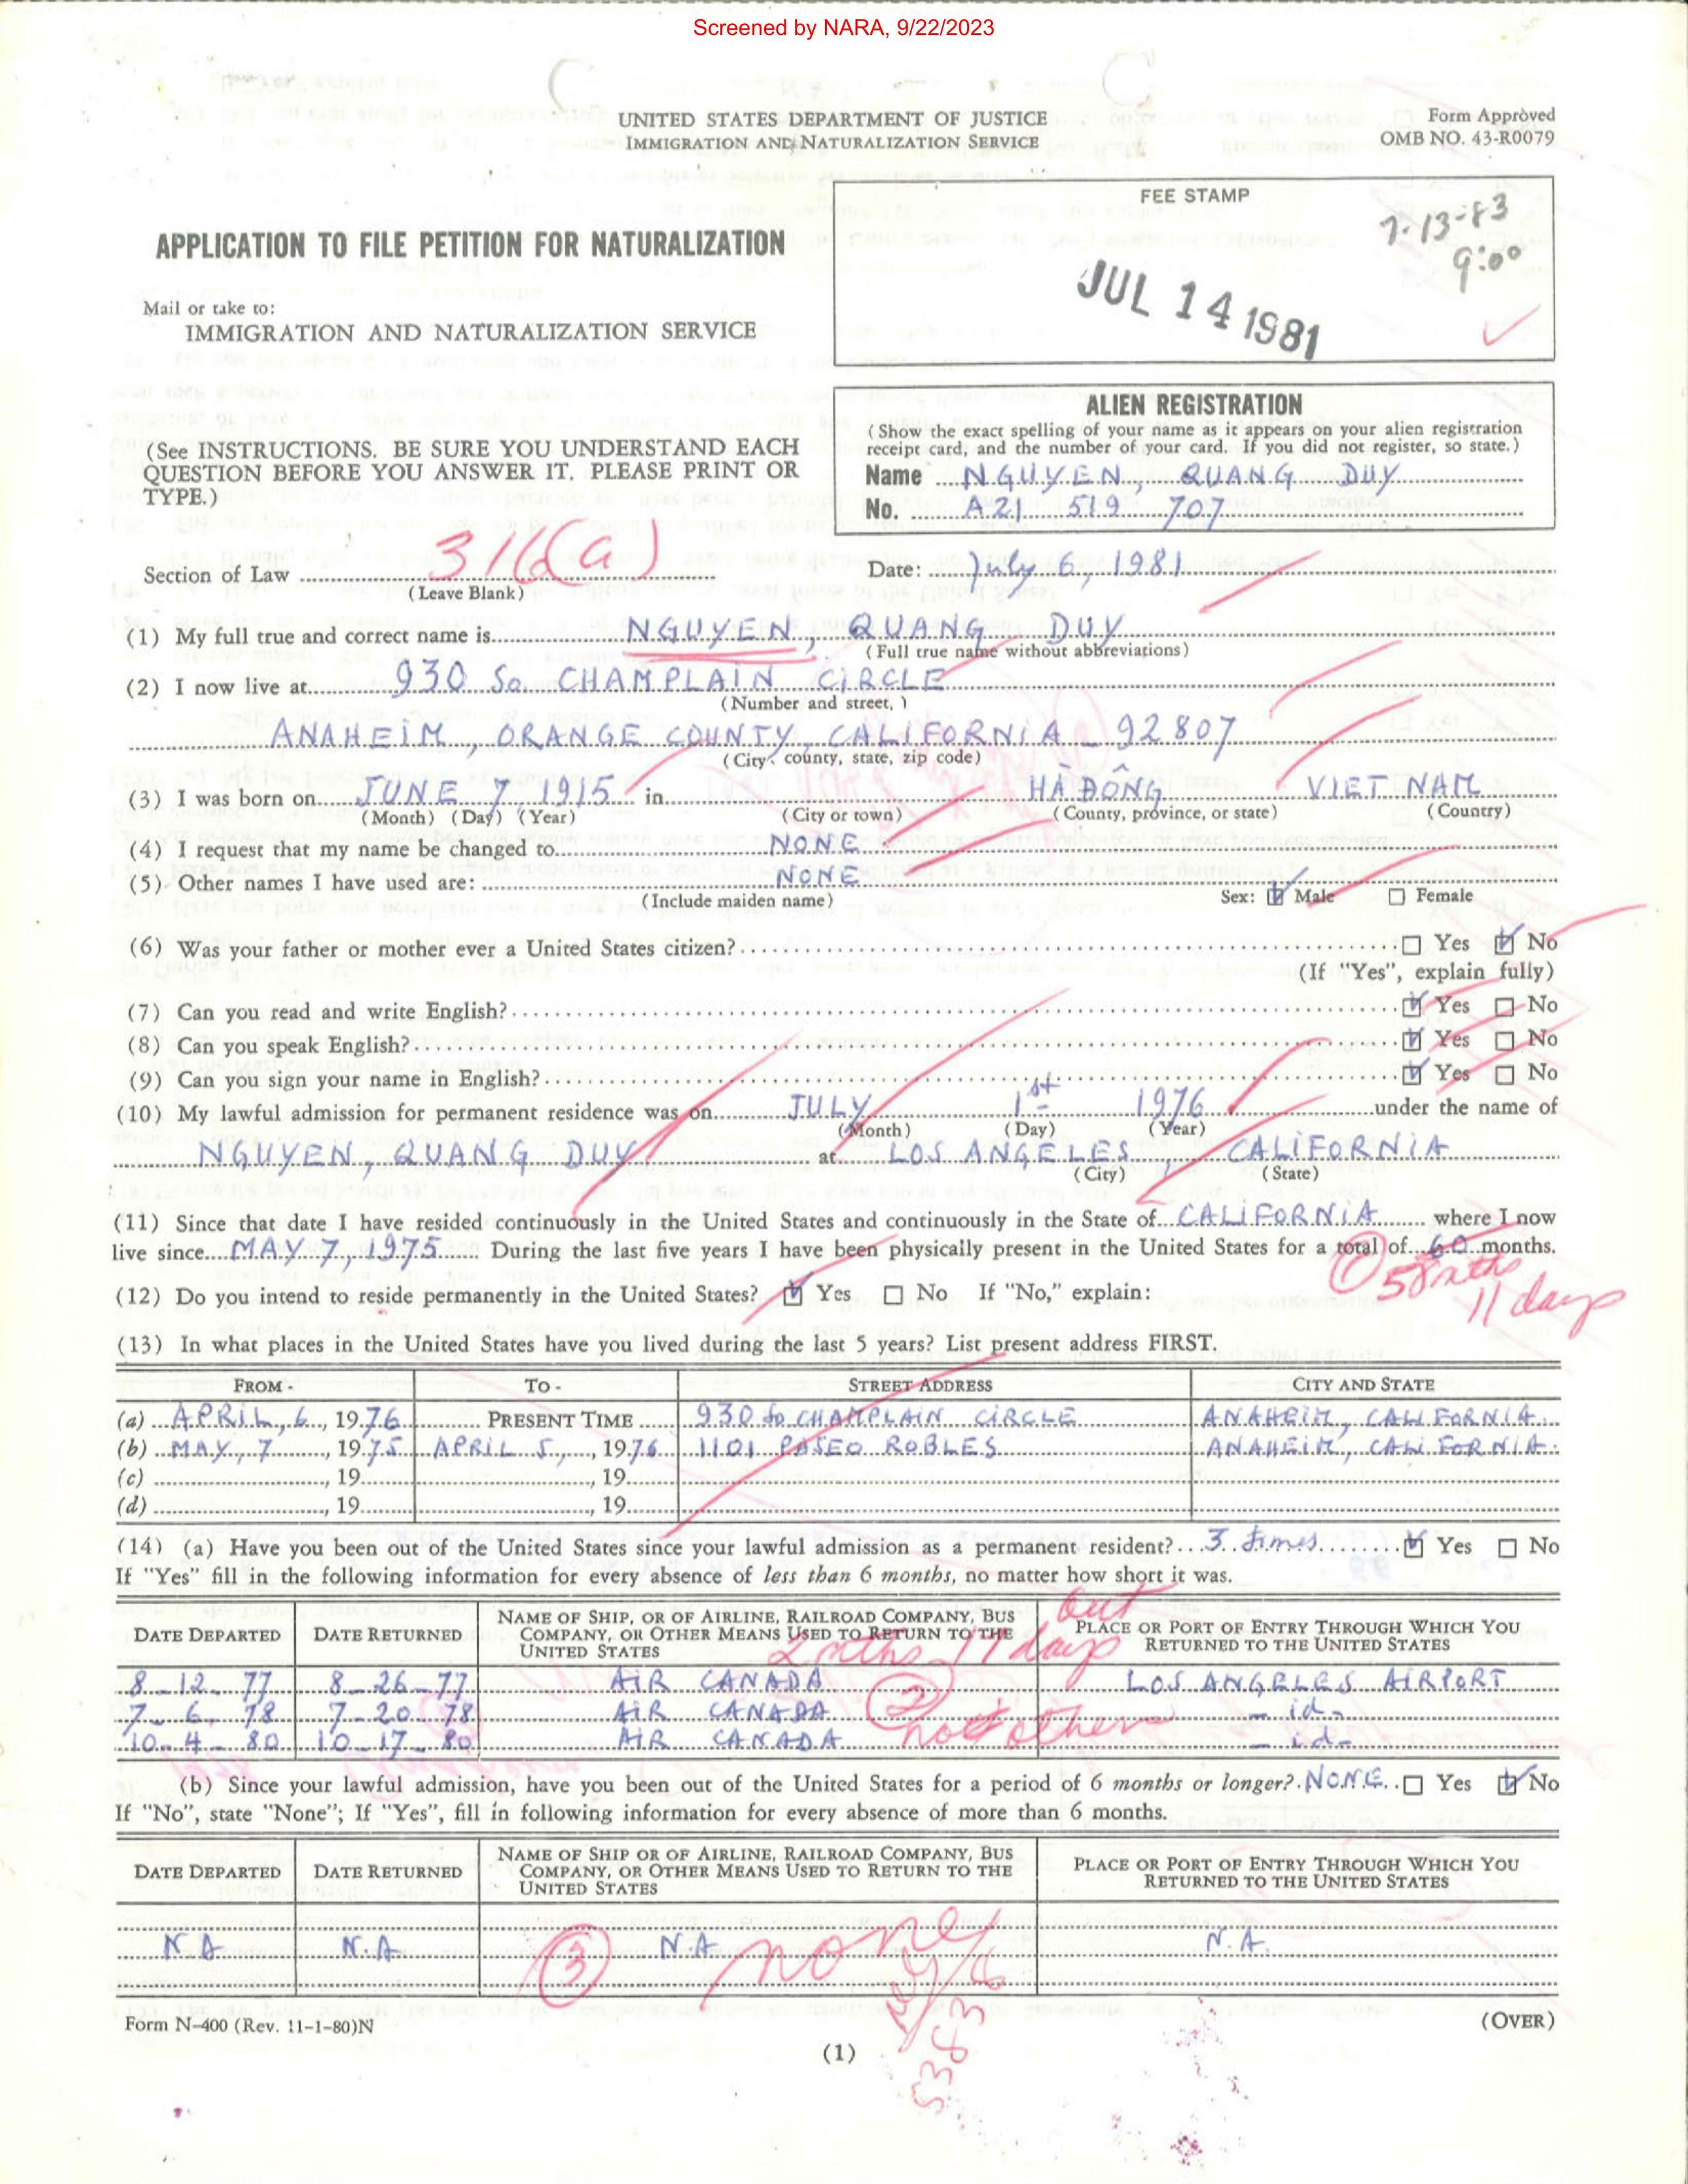 Screened by NARA, 9/22/2023
UNITED STATES DEPARTMENT OF JUSTICE
IMMIGRATION AND NATURALIZATION SERVICE
Form Approved
OMB NO. 43-R0079
FEE STAMP
7-13-83
9:00
JUL 14 1981
APPLICATION TO FILE PETITION FOR NATURALIZATION
Mail or take to:
IMMIGRATION AND NATURALIZATION SERVICE
ALIEN REGISTRATION
(Show the exact spelling of your name as it appears on your alien registration
receipt card, and the number of your card. If you did not register, so state.)
Name NGUYEN, QUANG DUY
No. A21 519 707
(See INSTRUCTIONS. BE SURE YOU UNDERSTAND EACH
QUESTION BEFORE YOU ANSWER IT. PLEASE PRINT OR
TYPE.)
Section of Law 316(a)
(Leave Blank)
Date: July 6, 1981
(1) My full true and correct name is NGUYEN, QUANG DUY
(Full true name without abbreviations)
(2) I now live at 930 So. CHAMPLAIN CIRCLE
(Number and street, )
ANAHEIM, ORANGE COUNTY, CALIFORNIA - 92807
(City, county, state, zip code)
(3) I was born on JUNE 7, 1915 in HÀ ĐÔNG VIET NAM
(Month) (Day) (Year) (City or town) (County, province, or state) (Country)
(4) I request that my name be changed to NONE
(5) Other names I have used are: NONE
(Include maiden name) Sex: Male Female
(6) Was your father or mother ever a United States citizen? Yes No
(If "Yes", explain fully)
(7) Can you read and write English? Yes No
(8) Can you speak English? Yes No
(9) Can you sign your name in English? Yes No
(10) My lawful admission for permanent residence was on JULY 1st 1976 under the name of
(Month) (Day) (Year)
NGUYEN, QUANG DUY at LOS ANGELES, CALIFORNIA
(City) (State)
(11) Since that date I have resided continuously in the United States and continuously in the State of CALIFORNIA where I now
live since MAY 7, 1975 During the last five years I have been physically present in the United States for a total of 60 months.
1 58 mths
11 days
(12) Do you intend to reside permanently in the United States? Yes No If "No," explain:
(13) In what places in the United States have you lived during the last 5 years? List present address FIRST.
FROM - TO - STREET ADDRESS CITY AND STATE
(a) APRIL, 6, 1976 PRESENT TIME 930 So CHAMPLAIN CIRCLE ANAHEIM, CALIFORNIA
(b) MAY, 7, 1975 APRIL 5, 1976 1101 PASEO ROBLES ANAHEIM, CALIFORNIA
(c) , 19 , 19
(d) , 19 , 19
(14) (a) Have you been out of the United States since your lawful admission as a permanent resident? 3 times Yes No
If "Yes" fill in the following information for every absence of less than 6 months, no matter how short it was.
out
DATE DEPARTED DATE RETURNED NAME OF SHIP, OR OF AIRLINE, RAILROAD COMPANY, BUS COMPANY, OR OTHER MEANS USED TO RETURN TO THE UNITED STATES PLACE OR PORT OF ENTRY THROUGH WHICH YOU RETURNED TO THE UNITED STATES
2 mths 17 days
8-12-77 8-26-77 AIR CANADA LOS ANGELES AIRPORT
7-6-78 7-20-78 AIR CANADA - id-
10-4-80 10-17-80 AIR CANADA - id-
2 no others
(b) Since your lawful admission, have you been out of the United States for a period of 6 months or longer? NONE Yes No
If "No", state "None"; If "Yes", fill in following information for every absence of more than 6 months.
DATE DEPARTED DATE RETURNED NAME OF SHIP OR OF AIRLINE, RAILROAD COMPANY, BUS COMPANY, OR OTHER MEANS USED TO RETURN TO THE UNITED STATES PLACE OR PORT OF ENTRY THROUGH WHICH YOU RETURNED TO THE UNITED STATES
N.A N.A N.A N.A.
3 none
5383
Form N-400 (Rev. 11-1-80)N
(OVER)
(1)